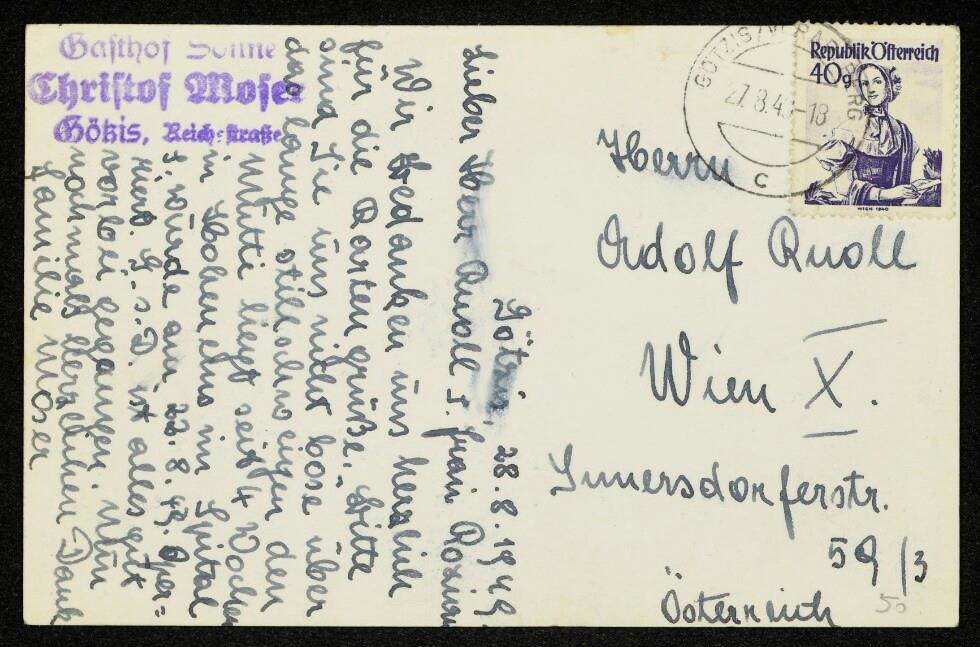 Gasthof Sonne
Christof Moser
Götzis, Reichsstraße
Götzis, 28.8.1949.
Lieber Herr Knoll s. Frau
Wir bedanken uns herzlich
für die Kartengrüße. Bitte
sind Sie uns nicht böse über
das lange stillschweigen den
Mutti liegt seit 4 Wochen
in Hohenems im Spital
s. wurde am 22.8.49. Oper=
iert. G.s.D. ist alles gut
vorbei gegangen. Nun
nochmals herzlichen Dank
Familie Moser
GÖTZIS (VORARLBERG)
27.8.49-18
C
Republik Österreich
40g
WIEN 1940
Herrn
Adolf Knoll
Wien X.
Innersdorferstr.
59/3
Österreich
50